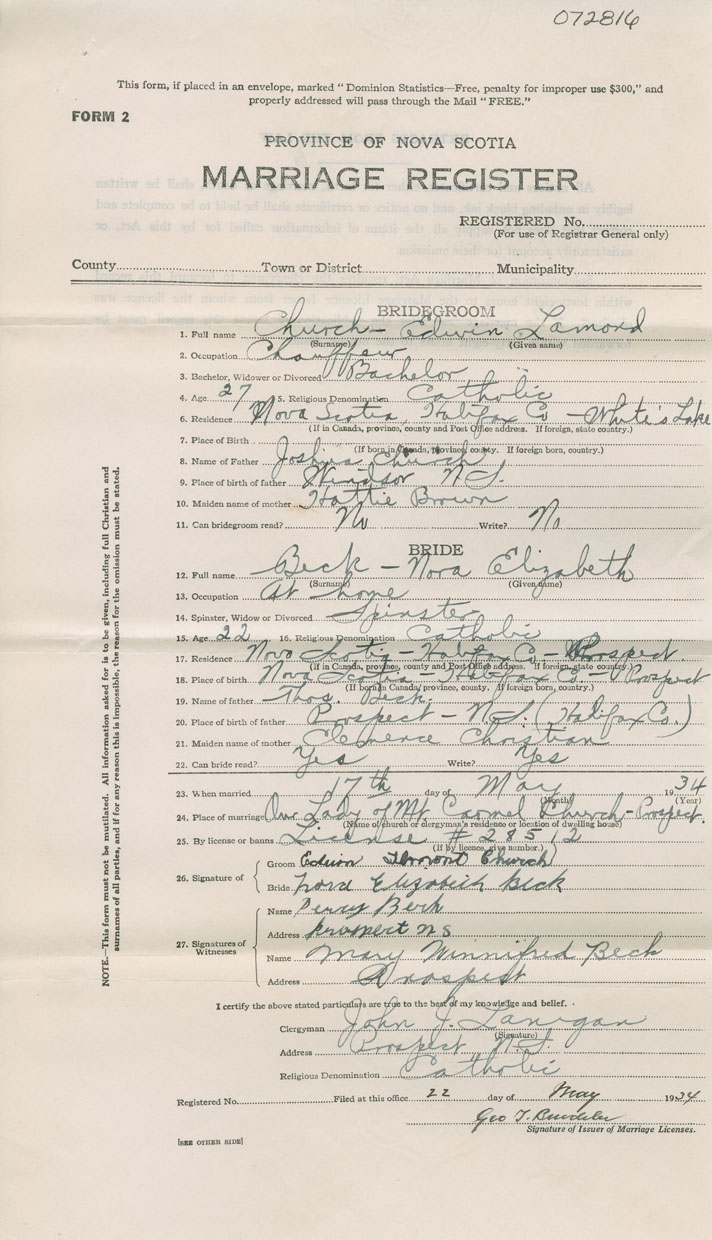 072816
This form, if placed in an envelope, marked "Dominion Statistics—Free, penalty for improper use $300," and
properly addressed will pass through the Mail "FREE."
FORM 2
PROVINCE OF NOVA SCOTIA
MARRIAGE REGISTER
REGISTERED No.
(For use of Registrar General only)
County Town or District Municipality
BRIDEGROOM
1. Full name Church - Edwin Lamond
(Surname) (Given name)
2. Occupation Chauffeur
3. Bachelor, Widower or Divorced Bachelor
4. Age 27 5. Religious Denomination Catholic
6. Residence Nova Scotia, Halifax Co - White's Lake
(If in Canada, province, county and Post Office address. If foreign, state country.)
7. Place of Birth
(If born in Canada, province, county. If foreign born, country.)
8. Name of Father Joshua Church
9. Place of birth of father Windsor N.S.
10. Maiden name of mother Hattie Brown
11. Can bridegroom read? No Write? No
BRIDE
12. Full name Beck - Nora Elizabeth
(Surname) (Given name)
13. Occupation At home
14. Spinster, Widow or Divorced Spinster
15. Age 22 16. Religious Denomination Catholic
17. Residence Nova Scotia - Halifax Co - Prospect.
(If in Canada, province, county and Post Office address. If foreign, state country.)
18. Place of birth Nova Scotia - Halifax Co. - Prospect
(If born in Canada, province, county. If foreign born, country.)
19. Name of father Thos. Beck.
20. Place of birth of father Prospect - N.S. (Halifax Co.)
21. Maiden name of mother Clemence Christian
22. Can bride read? Yes Write? Yes
23. When married 17th day of May 1934
(Month) (Year)
24. Place of marriage Our Lady of Mt. Carmel Church - Prospect.
(Name of church or clergyman's residence or location of dwelling house)
25. By license or banns License # 28512
(If by licence, give number.)
26. Signature of
Groom Edwin Church
Bride Nora Elizabeth Beck
27. Signatures of Witnesses
Name Percy Beck
Address Prospect NS
Name Mary Winnifred Beck
Address Prospect
I certify the above stated particulars are true to the best of my knowledge and belief.
Clergyman John J. Lanigan
(Signature)
Address Prospect N.S.
Religious Denomination Catholic
Registered No. Filed at this office 22 day of May 1934
Geo T.
Signature of Issuer of Marriage Licenses.
[SEE OTHER SIDE]
NOTE.—This form must not be mutilated. All information asked for is to be given, including full Christian and
surnames of all parties, and if for any reason this is impossible, the reason for the omission must be stated.